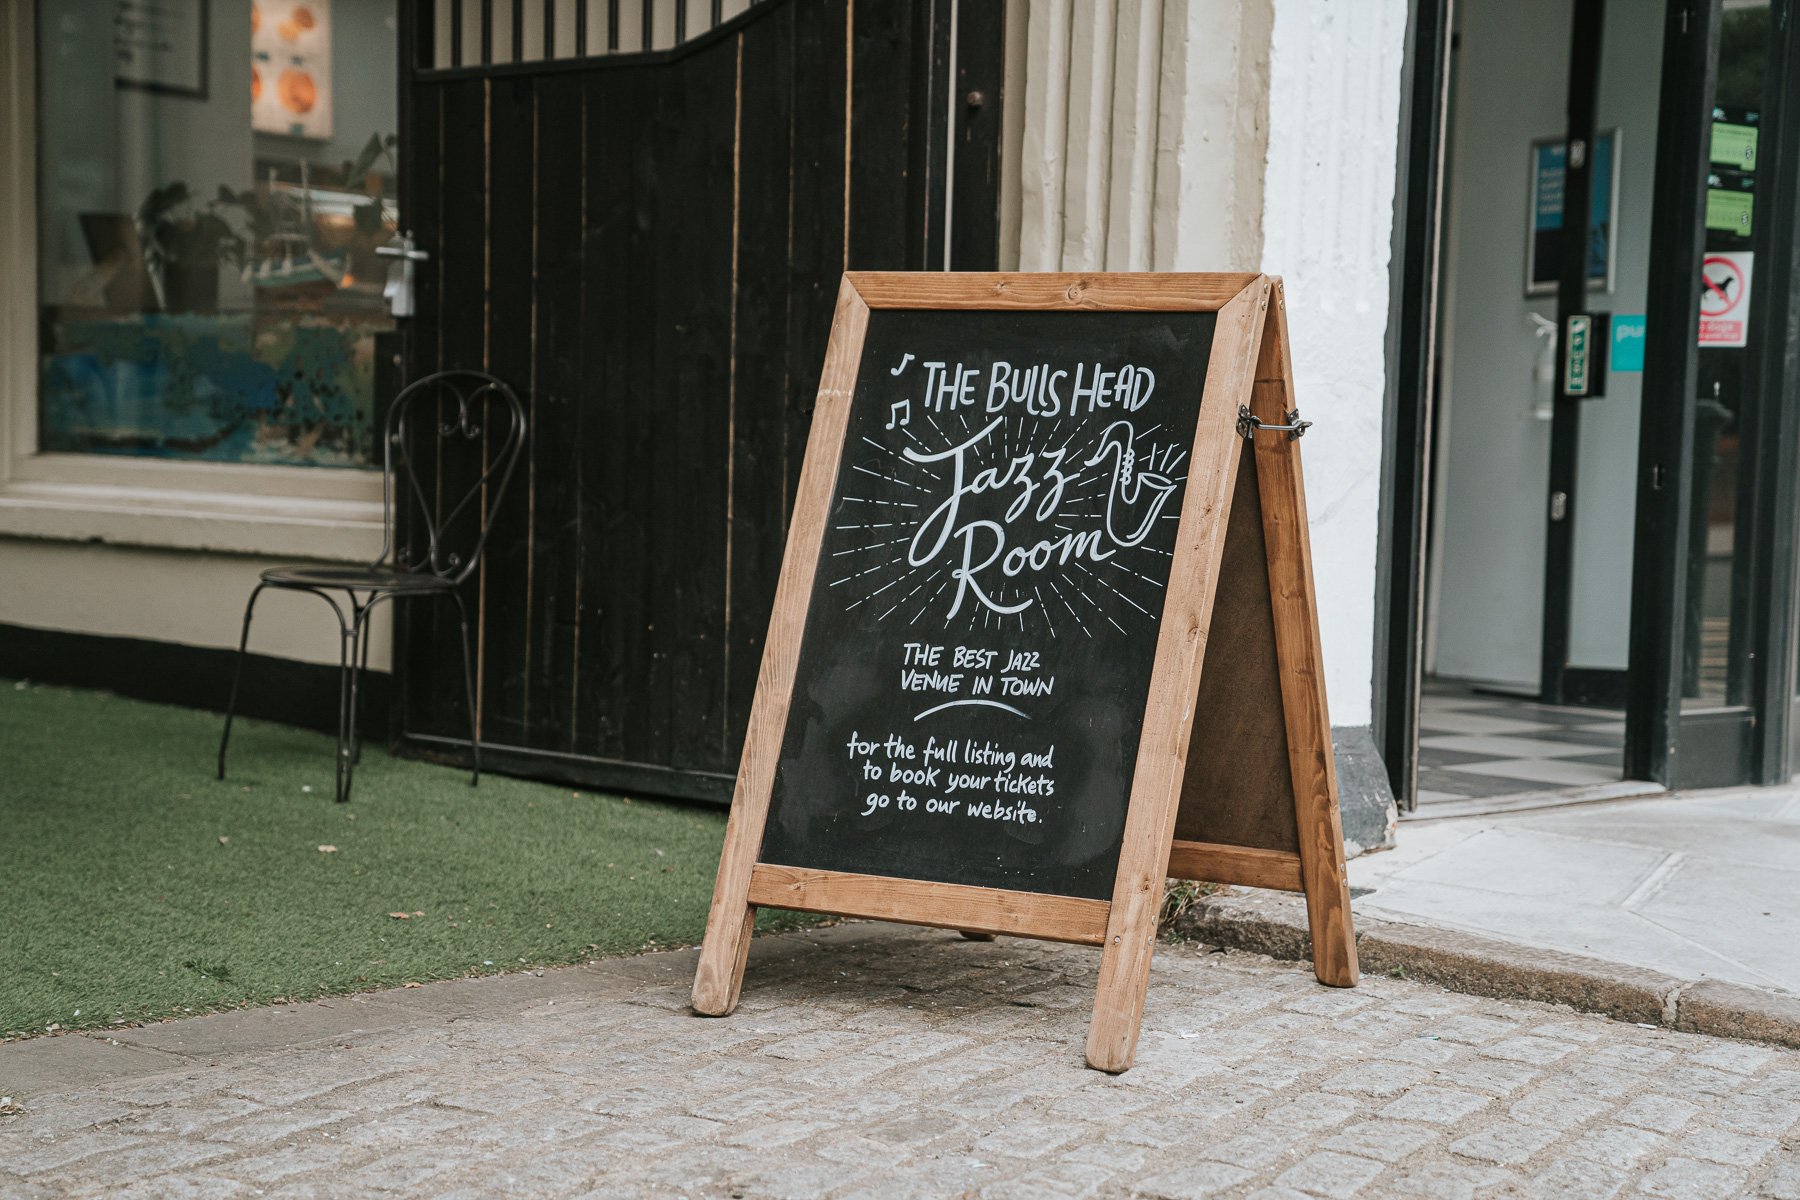 THE BULLS HEAD
Jazz
Room
THE BEST JAZZ
VENUE IN TOWN
for the full listing and
to book your tickets
go to our website.